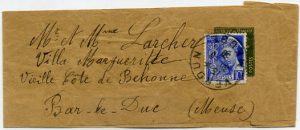 Mr et Mme Larcher
Villa Marguerite
Vieille Côte de Behonne
Bar-le-Duc (Meuse)